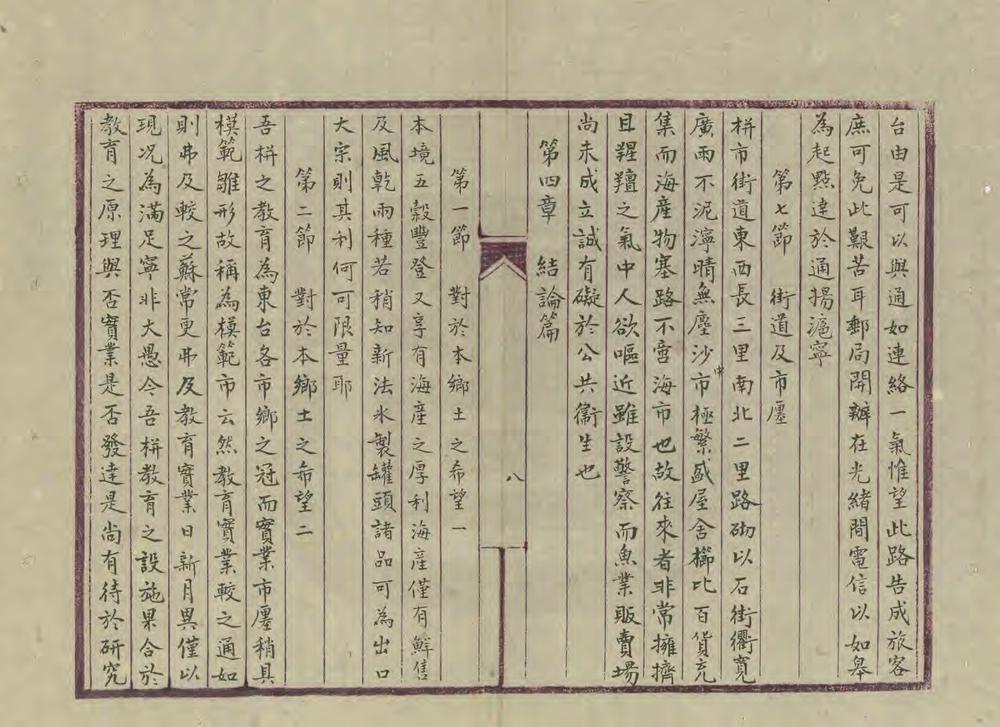 台由是可以與通如連絡一氣惟望此路告成旅客
庶可免此艱苦耳郵局開辦在光緒間電信以如皋
為起點達於通揚滬寧
第七節　街道及市廛
栟市街道東西長三里南北二里路砌以石街衢寬
廣雨不泥濘晴無塵沙市中極繁盛屋舍櫛比百貨充
集而海產物塞路不啻海市也故往來者非常擁擠
且腥羶之氣中人欲嘔近雖設警察而魚業販賣場
尚未成立誠有礙於公共衞生也
第四章　結論篇
八
第一節　對於本鄉土之希望一
本境五穀豐登又享有海產之厚利海產僅有鮮售
及風乾兩種若稍知新法氷製罐頭諸品可為出口
大宗則其利何可限量耶
第二節　對於本鄉土之希望二
吾栟之教育為東台各市鄉之冠而實業市廛稍具
模範雛形故稱為模範市云然教育實業較之通如
則弗及較之蘇常更弗及教育實業日新月異僅以
現况為滿足寧非大愚今吾栟教育之設施果合於
教育之原理與否實業是否發達是尚有待於研究